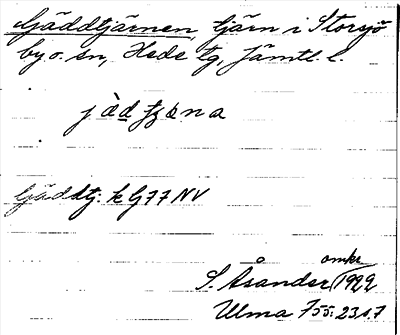 Gäddtjärnen, tjärn i Storsjö
by o. sn, Hede tg, Jämtl. l.
Gäddtj: k G 77 NV
S. Åsander omkr 1922
Ulma 755: 23 s. 7